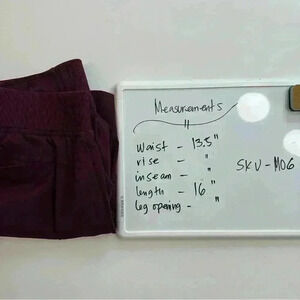 Measurements
waist - 13.5"
rise - "
inseam - "
length - 16"
leg opening - "
SKU-M06